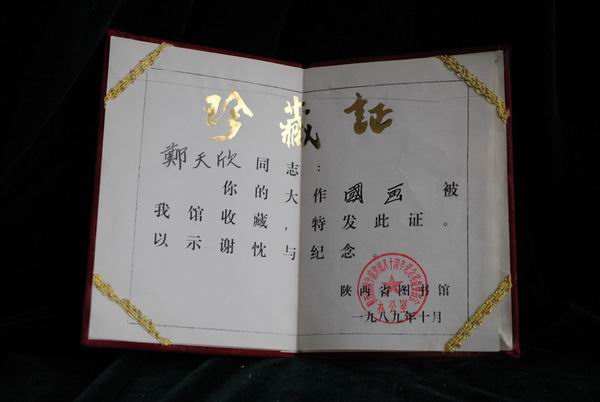 珍藏証
鄭天欣同志：
你的大作國画被
我馆收藏，特发此证。
以示谢忱与纪念。
陕西省图书馆
一九八九年十月
办公室